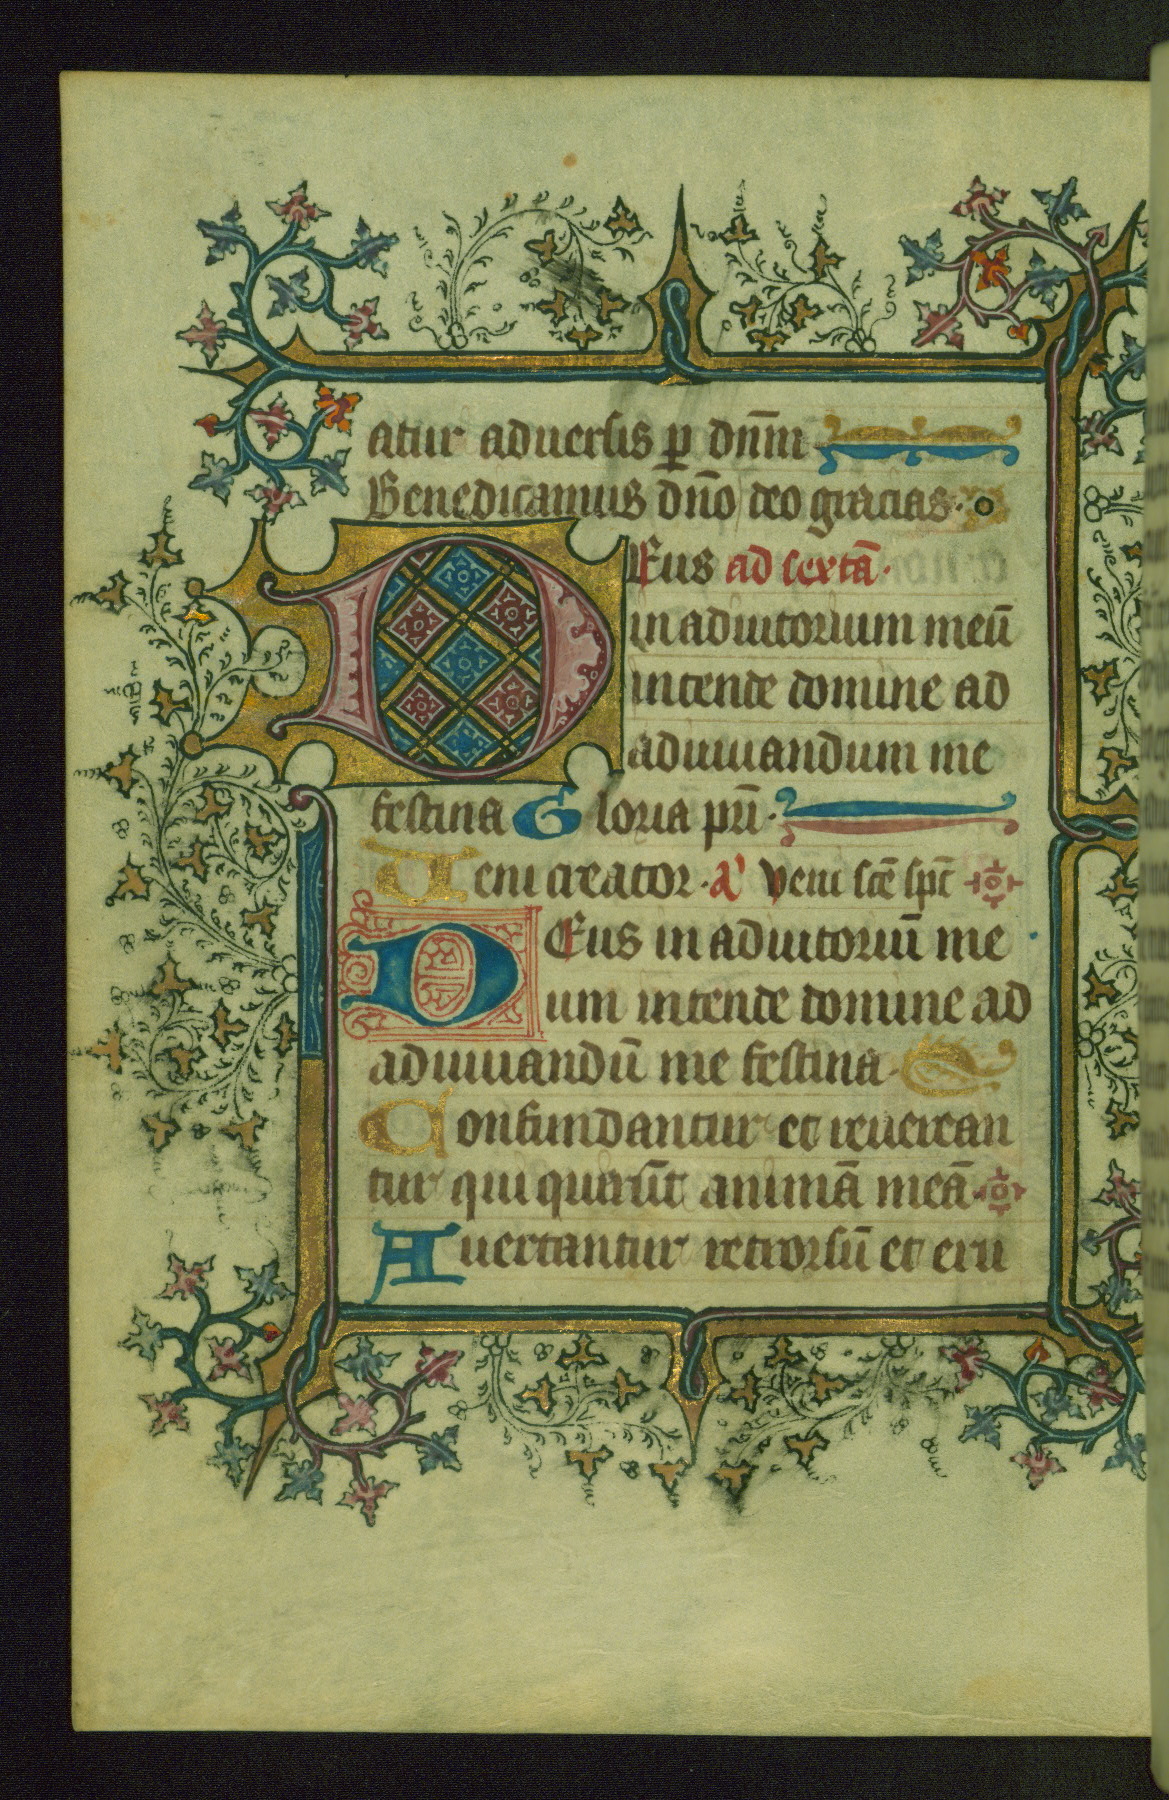 atur aduersis ꝑ dn̄m
Benedicamus dn̄o deo gracias.
DEus ad sextā.
in adiutorium meū
intende domine ad
adiuuandum me
festina Gloria pr̄i.
Ueni creator. a' veni sc̄e sp̄c
DEus in adiutoriū me
um intende domine ad
adiuuandū me festina.
Confundantur et reuerean
tur qui querūt animā meā.
Auertantur retrorsū et eru